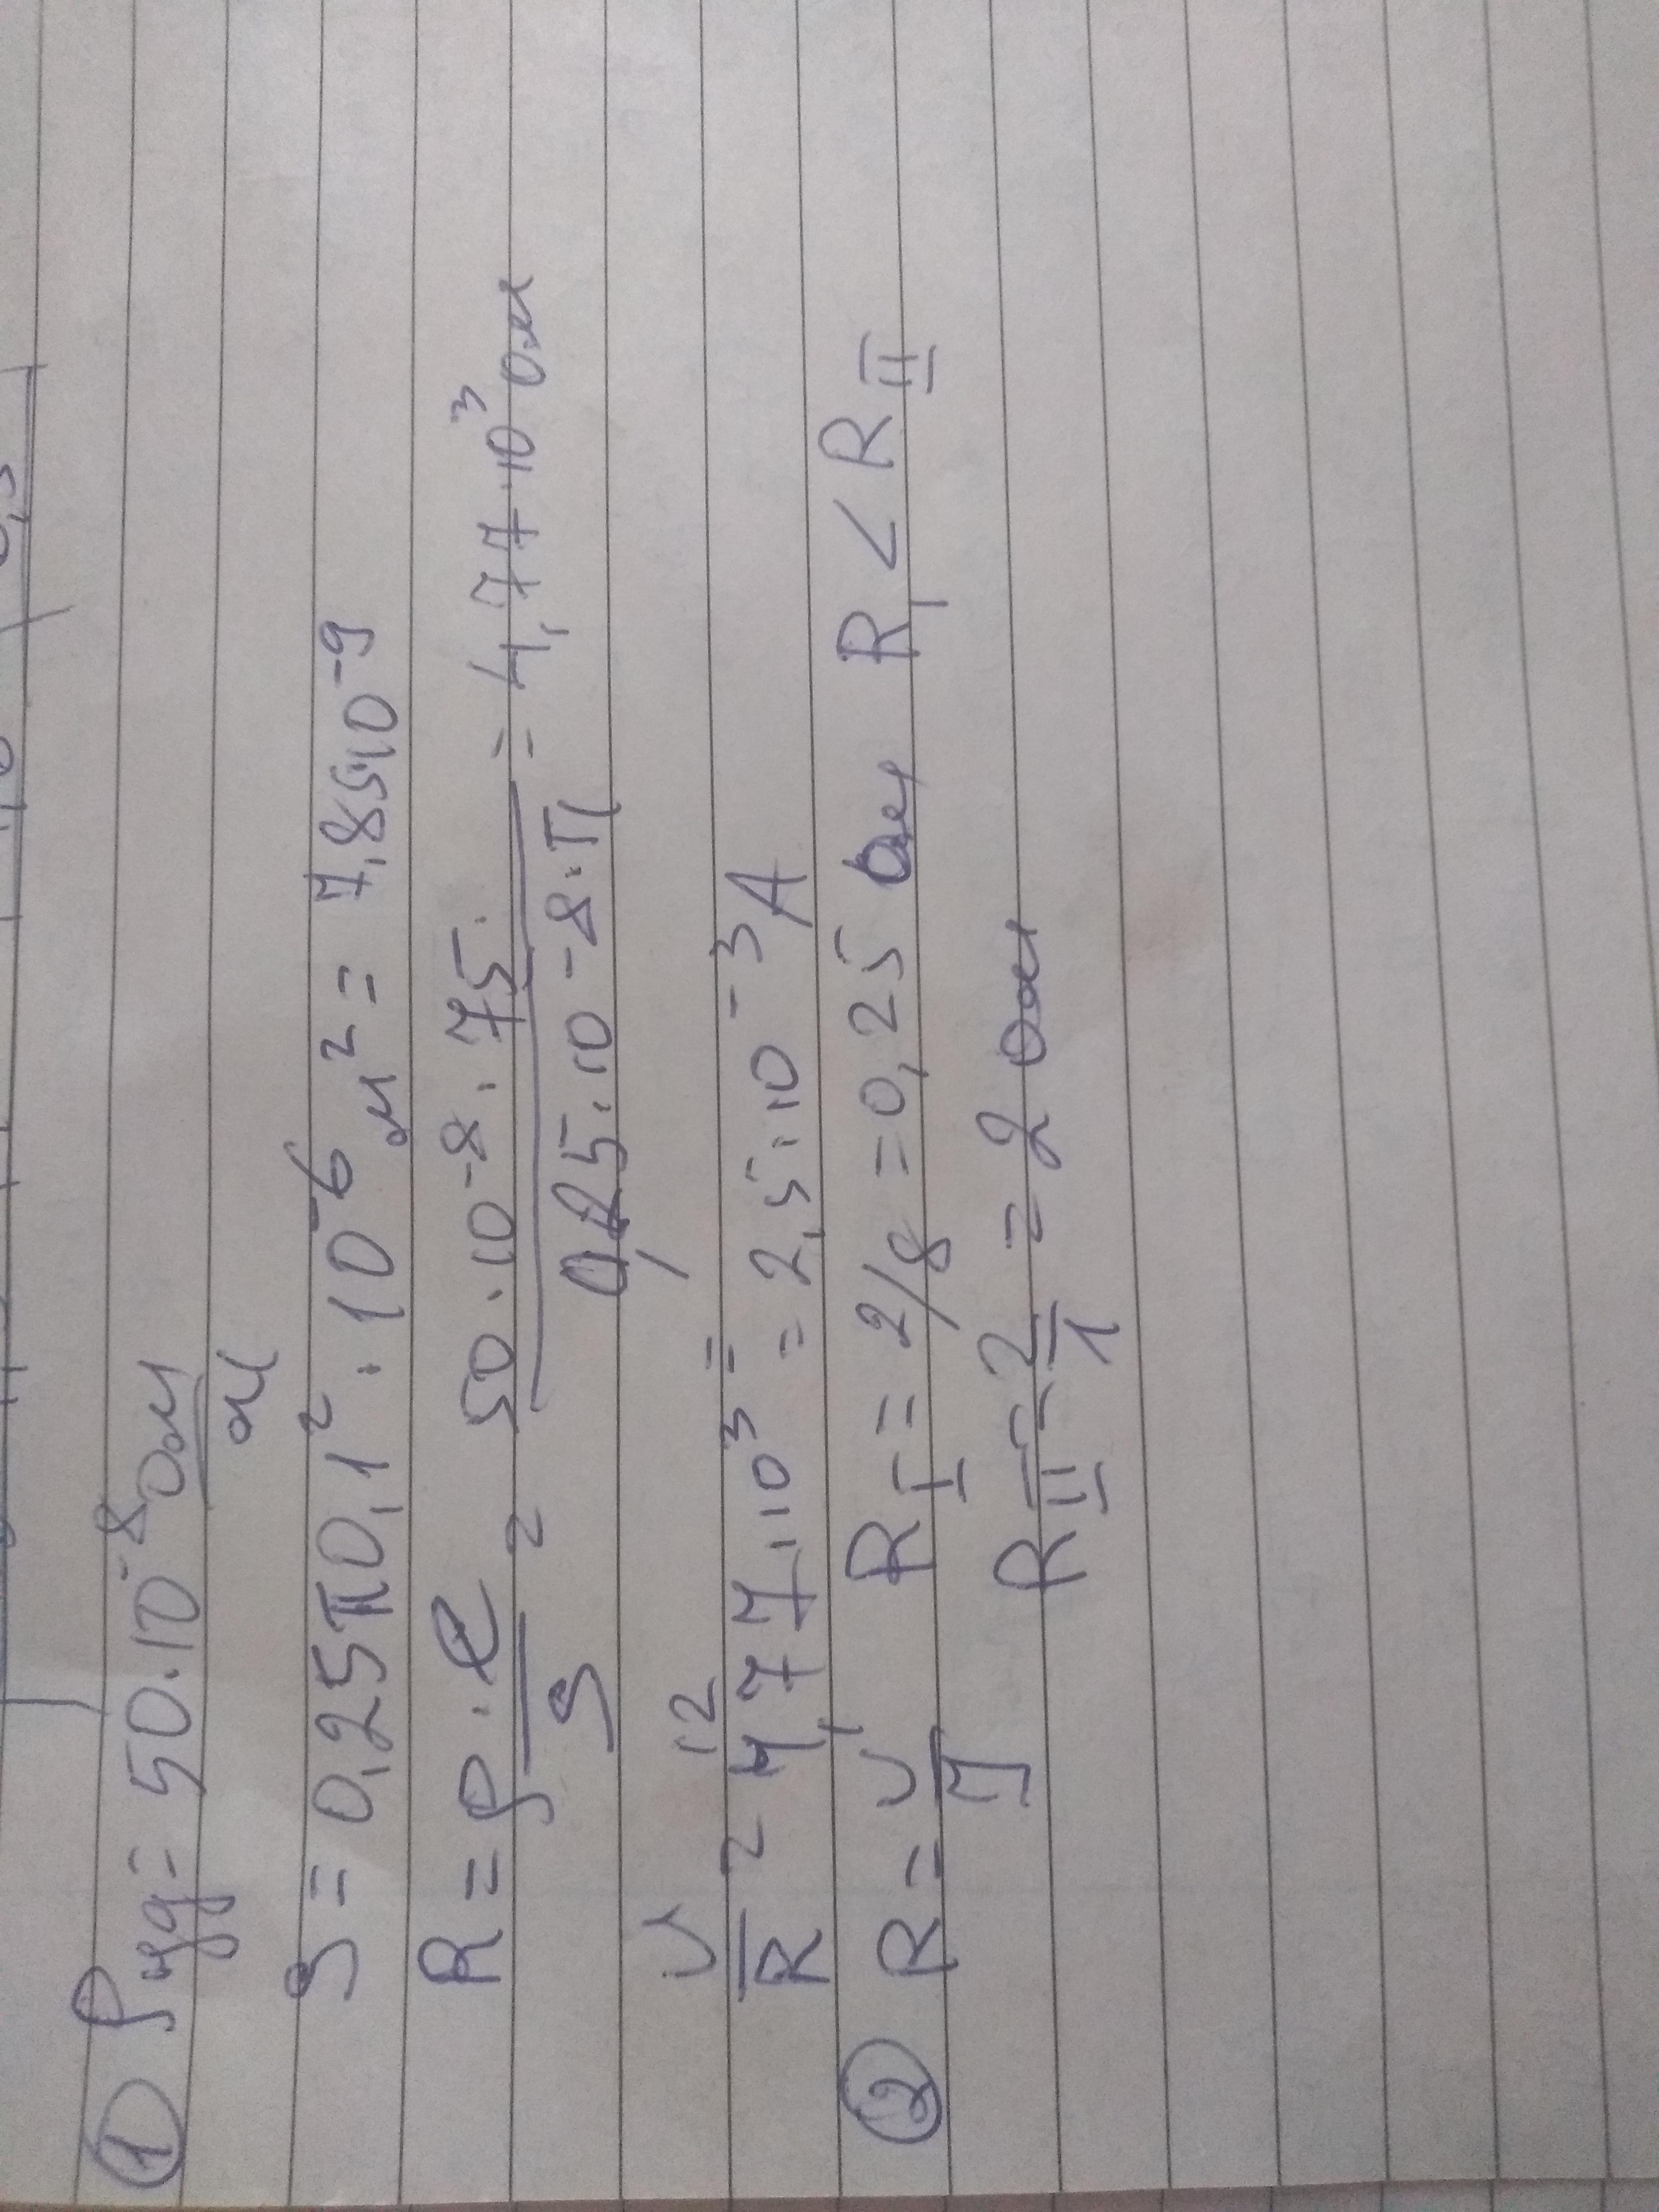 ① ρ уд = 50·10⁻⁸ Ом/м
S = 0,25π0,1²·10⁻⁶ м² = 7,85·10⁻⁹
R = ρ·ℓ/S = 50·10⁻⁸·75/0,25·10⁻⁸·π = 4,77·10³ Ом
U/R = 12/4,77·10³ = 2,5·10⁻³ A
② R = U/J R_I = 2/8 = 0,25 Ом R_I < R_II
R_II = 2/1 = 2 Ом